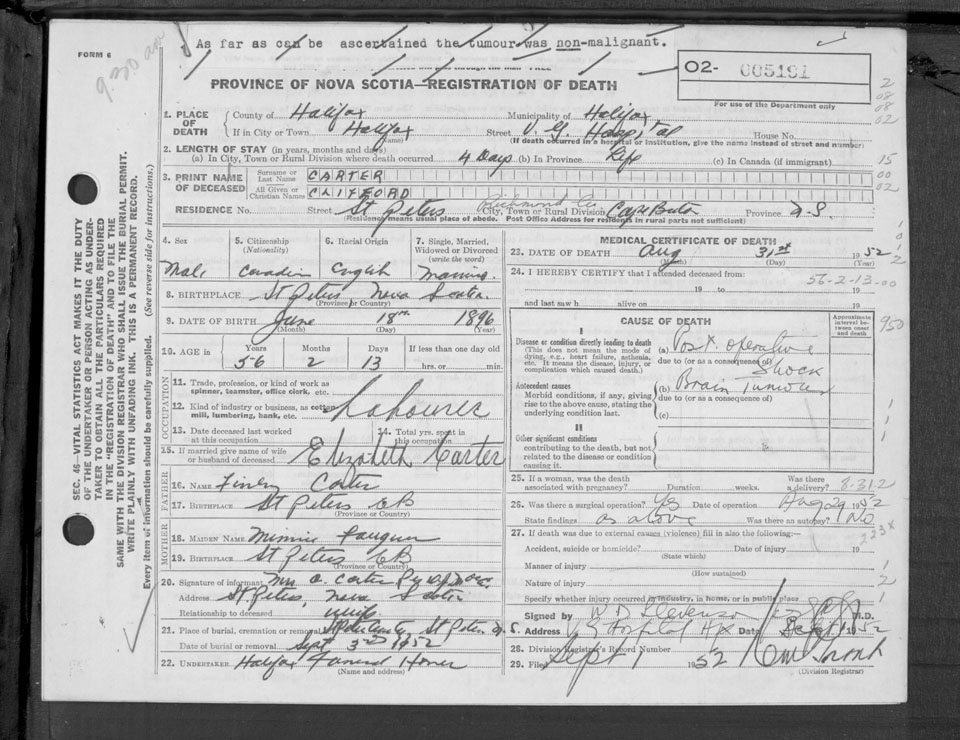 As far as can be ascertained the tumour was non-malignant.
FORM 6
9.30 am
PROVINCE OF NOVA SCOTIA—REGISTRATION OF DEATH
02- 005191
For use of the Department only
1. PLACE OF DEATH
County of Halifax Municipality of Halifax
If in City or Town Halifax Street V. G. Hospital House No.
(Name) (If death occurred in a hospital or institution, give the name instead of street and number)
2. LENGTH OF STAY (in years, months and days)
(a) In City, Town or Rural Division where death occurred 4 Days (b) In Province Life (c) In Canada (if immigrant)
3. PRINT NAME OF DECEASED
Surname or Last Name CARTER
All Given or Christian Names CLIFFORD
RESIDENCE No. Street St Peters Richmond Co City, Town or Rural Division Cape Breton Province N.S.
(Residency means usual place of abode. Post Office Address for residents in rural parts not sufficient)
4. Sex 5. Citizenship (Nationality) 6. Racial Origin 7. Single, Married, Widowed or Divorced (write the word)
Male Canadian English Married
8. BIRTHPLACE St Peters Nova Scotia
(Province or Country)
9. DATE OF BIRTH June 18th 1896
(Month) (Day) (Year)
10. AGE in Years Months Days If less than one day old
56 2 13 hrs. or min.
OCCUPATION
11. Trade, profession, or kind of work as spinner, teamster, office clerk, etc.
12. Kind of industry or business, as cotton mill, lumbering, bank, etc. Labourer
13. Date deceased last worked at this occupation
14. Total yrs. spent in this occupation
15. If married give name of wife or husband of deceased Elizabeth Carter
FATHER
16. NAME Carter
17. BIRTHPLACE St Peters CB
(Province or Country)
MOTHER
18. MAIDEN NAME Minnie
19. BIRTHPLACE St Peters CB
(Province or Country)
20. Signature of informant Mrs Carter
Address St. Peters, Nova Scotia
Relationship to deceased wife
21. Place of burial, cremation or removal St Peters
Date of burial or removal Sept 3rd 1952
22. UNDERTAKER Halifax Funeral Home
(Name and address)
MEDICAL CERTIFICATE OF DEATH
23. DATE OF DEATH Aug 31st 1952
(Month) (Day)
24. I HEREBY CERTIFY that I attended deceased from:
19 to 19
56-2-13-00
and last saw h alive on 19
CAUSE OF DEATH
Approximate interval between onset and death
I
Disease or condition directly leading to death
(This does not mean the mode of dying, e.g., heart failure, asthenia, etc. It means the disease, injury, or complication which caused death.)
(a) Post operative Shock
due to (or as a consequence of)
Antecedent causes
Morbid conditions, if any, giving rise to the above cause, stating the underlying condition last.
(b) Brain Tumour
due to (or as a consequence of)
(c)
II
Other significant conditions
contributing to the death, but not related to the disease or condition causing it.
950
25. If a woman, was the death associated with pregnancy? Duration weeks. Was there a delivery? 8-312
26. Was there a surgical operation? Yes Date of operation Aug 29 1952
State findings as above Was there an autopsy? No
223X
27. If death was due to external causes (violence) fill in also the following:—
Accident, suicide or homicide? Date of injury 19
(State which)
Manner of injury
(How sustained)
Nature of injury
Specify whether injury occurred in industry, in home, or in public place
Signed by W D Stevenson M.D.
Address V G Hospital Hfx Date Sept 1 1952
28. Division Registrar's Record Number
29. Filed Sept 1 1952
(Division Registrar)
SEC. 46—VITAL STATISTICS ACT MAKES IT THE DUTY
OF THE UNDERTAKER OR PERSON ACTING AS UNDER-
TAKER TO OBTAIN ALL THE PARTICULARS REQUIRED
IN THE "REGISTRATION OF DEATH" AND TO FILE THE
SAME WITH THE DIVISION REGISTRAR WHO SHALL ISSUE THE BURIAL PERMIT.
WRITE PLAINLY WITH UNFADING INK. THIS IS A PERMANENT RECORD.
Every item of information should be carefully supplied. (See reverse side for instructions.)